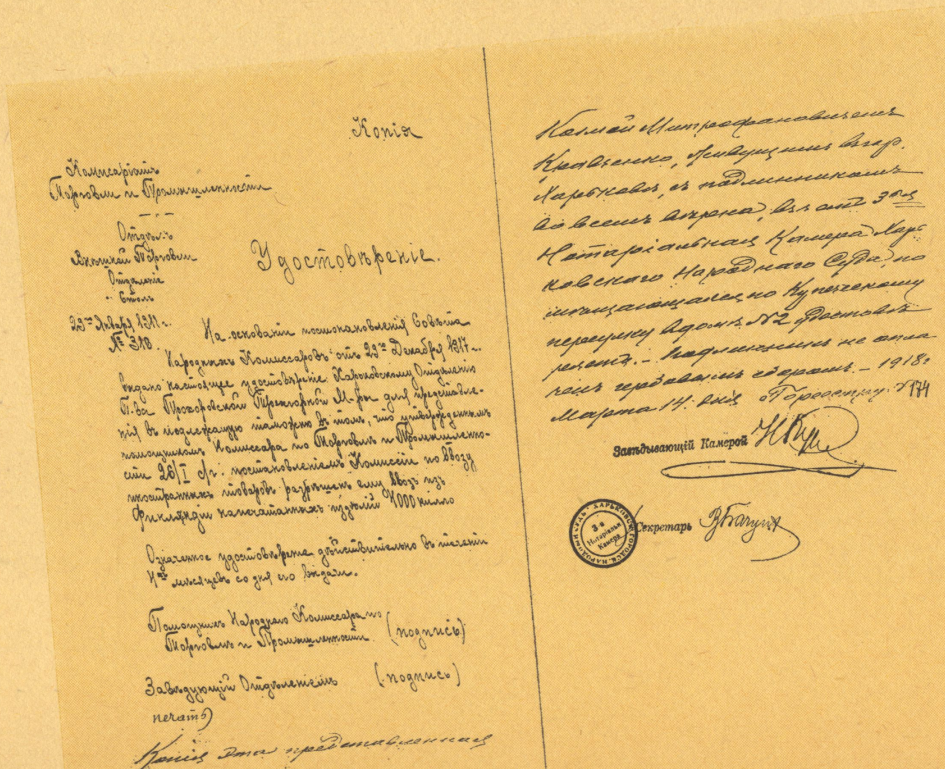 Копія
Комисаріатъ
Торговли и Промышленности
Отдѣлъ
Внѣшней Торговли
Отдѣленіе
Столъ
29го Января 1918 г.
№ 318.
Удостовѣреніе.
На основаніи постановленія Совѣта
Народныхъ Комиссаровъ отъ 29го Декабря 1917 г.
выдано настоящее удостовѣреніе Харьковскому Отдѣленію
Т-ва Прохоровской Трехгорной М-ры для представле-
нія въ подлежащую таможню въ томъ, что утвержденнымъ
помощникомъ Комиссара по Торговлѣ и Промышленно-
сти 26/I с/г. постановленіемъ Комиссіи по ввозу
иностранныхъ товаровъ разрѣшенъ ему ввозъ изъ
Финляндіи 4000 килло
Означенное удостовѣреніе дѣйствительно въ теченіи
4хъ мѣсяцевъ со дня его выдачи.
Помощникъ Народнаго Комиссара по
Торговлѣ и Промышленности (подпись)
Завѣдующій Отдѣленіемъ (подпись)
печать)
Копія эта представленная
Митрофановичемъ
Кравченко, живущимъ въ гор.
Харьковѣ, съ подлинникомъ
во всемъ вѣрна, 3ья
Нотаріальная Камера Харь-
ковскаго Народнаго Суда, по
мѣщающаяся по Купеческому
переулку въ домѣ № 2
Подлинникъ не опла
ченъ гербовымъ сборомъ. – 1918 г
Марта 14. дня По реестру № 174
Завѣдывающій Камерой
Секретарь
3-я
Нотаріальн.
Камера